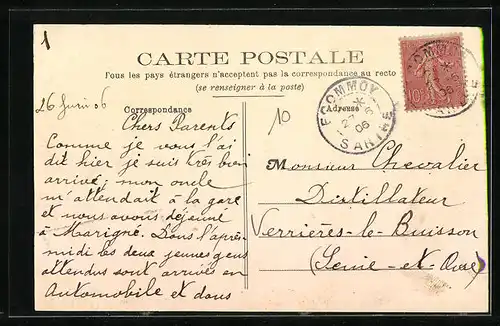 1
CARTE POSTALE
Tous les pays étrangers n'acceptent pas la correspondance au recto
(se renseigner à la poste)
Correspondance
Adresse
26 Juin 06
10
ECOMMOY
27 -6
06
SARTHE
Chers Parents
Comme je vous l'ai
dit hier je suis très bien
arrivé, mon oncle
m'attendait à la gare
et nous avons déjeuné
à Marigné. Dans l'après-
midi les deux jeunes gens
attendus sont arrivés en
Automobile et dans
Monsieur Chevalier
Distillateur
Verrières-le-Buisson
(Seine-et-Oise)